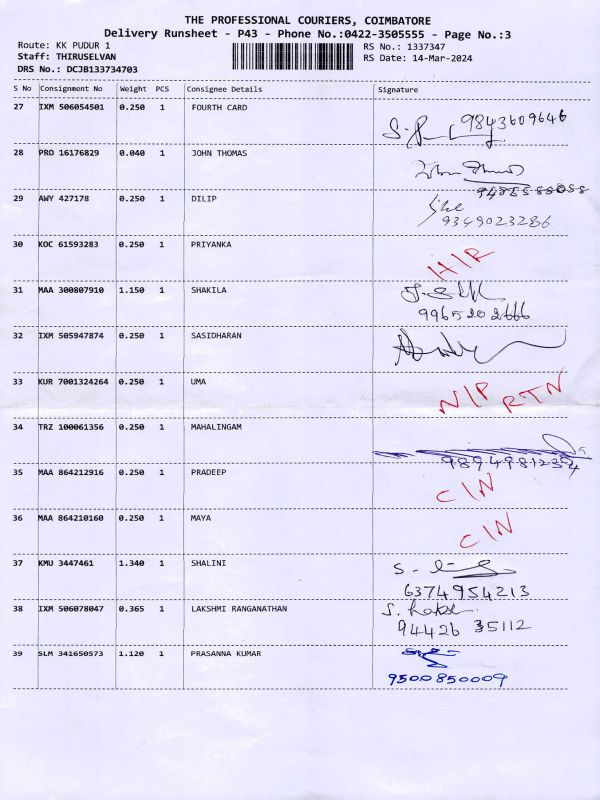 THE PROFESSIONAL COURIERS, COIMBATORE
Delivery Runsheet - P43 - Phone No.:0422-3505555 - Page No.:3
Route: KK PUDUR 1
RS No.: 1337347
Staff: THIRUSELVAN
RS Date: 14-Mar-2024
DRS No.: DCJB133734703
S No Consignment No Weight PCS Consignee Details Signature
27 IXM 506054501 0.250 1 FOURTH CARD
9843609646
28 PRO 16176829 0.040 1 JOHN THOMAS
29 AWY 427178 0.250 1 DILIP
9349023286
30 KOC 61593283 0.250 1 PRIYANKA
H/R
31 MAA 300807910 1.150 1 SHAKILA
9965202666
32 IXM 505947874 0.250 1 SASIDHARAN
33 KUR 7001324264 0.250 1 UMA
N/P RTN
34 TRZ 100061356 0.250 1 MAHALINGAM
9894981234
35 MAA 864212916 0.250 1 PRADEEP
C/N
36 MAA 864210160 0.250 1 MAYA
C/N
37 KMU 3447461 1.340 1 SHALINI
6374954213
38 IXM 506078047 0.365 1 LAKSHMI RANGANATHAN
94426 35112
39 SLM 341650573 1.120 1 PRASANNA KUMAR
9500850009